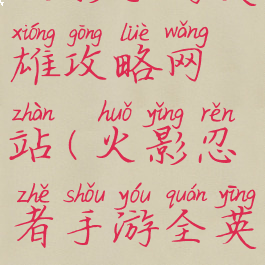 xióng gōng lüè wǎng
雄攻略网
zhàn huǒ yǐng rěn
站（火影忍
zhě shǒu yóu quán yīng
者手游全英